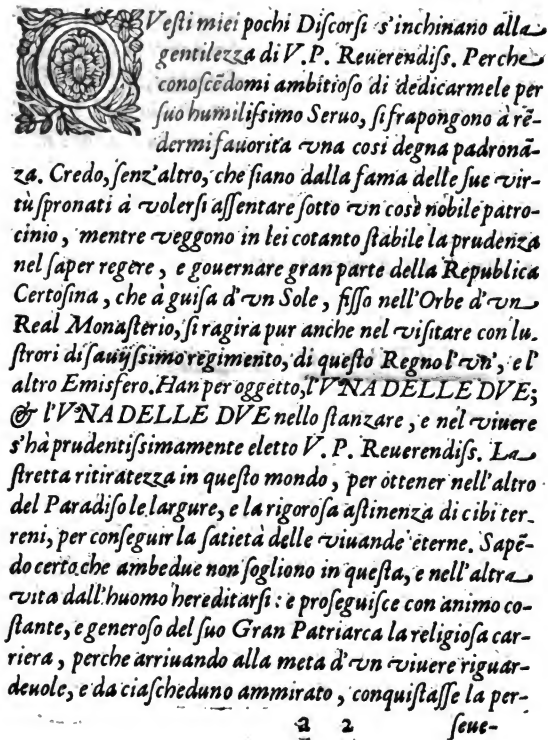 QVesti miei pochi Discorsi s'inchinano alla
gentilezza di V.P. Reuerendiss. Perche
conoscẽdomi ambitioso di dedicarmele per
suo humilissimo Seruo, si frapongono à rẽ-
dermi fauorita vna così degna padronã-
za. Credo, senz'altro, che siano dalla fama delle sue vir-
tù spronati à volersi assentare sotto vn così nobile patro-
cinio, mentre veggono in lei cotanto stabile la prudenza
nel saper regere, e gouernare gran parte della Republica
Certosina, che à guisa d'vn Sole, fisso nell'Orbe d'vn
Real Monasterio, si ragira pur anche nel visitare con lu-
strori di sauijssimo regimento, di questo Regno l'vn', e l'
altro Emisfero. Han per oggetto, l'VNA DELLE DVE;
& l'VNA DELLE DVE nello stanzare, e nel viuere
s'hà prudentissimamente eletto V.P. Reuerendiss. La
stretta ritiratezza in questo mondo, per ottener nell'altro
del Paradiso le largure, e la rigorosa astinenza di cibi ter-
reni, per conseguir la satietà delle viuande eterne. Sapẽ-
do certo che ambedue non sogliono in questa, e nell'altra
vita dall'huomo hereditarsi: e proseguisce con animo co-
stante, e generoso del suo Gran Patriarca la religiosa car-
riera, perche arriuando alla meta d'vn viuere riguar-
deuole, e da ciascheduno ammirato, conquistasse la per-
a 2 seue-